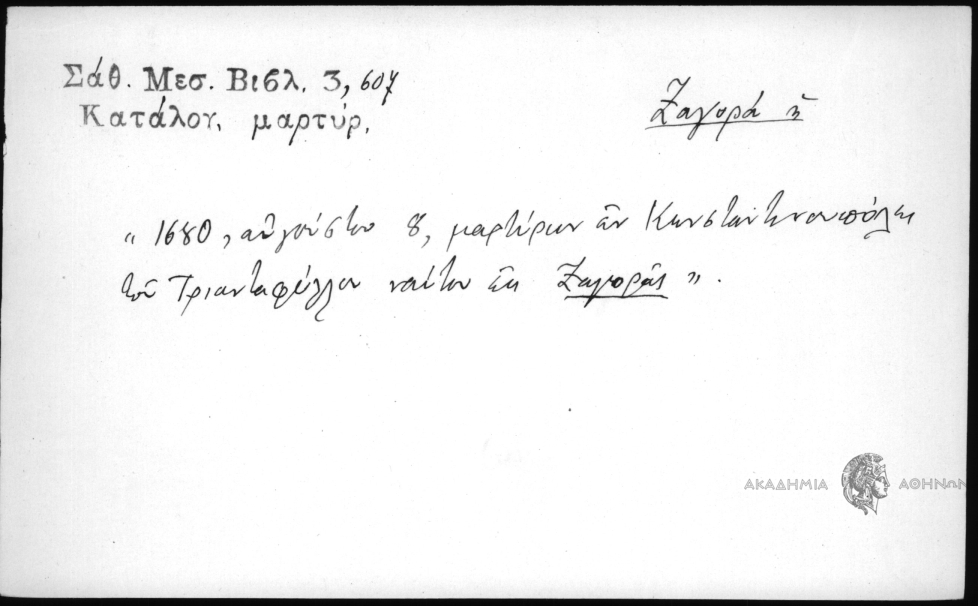 Σάθ. Μεσ. Βιβλ. 3, 607
Κατάλογ. μαρτύρ.
Ζαγορά ἡ
"1680, αὐγούστου 8, μαρτύριον ἐν Κωνσταντινουπόλει
τοῦ Τριανταφύλλου ναύτου ἐκ Ζαγορᾶς".
ΑΚΑΔΗΜΙΑ ΑΘΗΝΩΝ